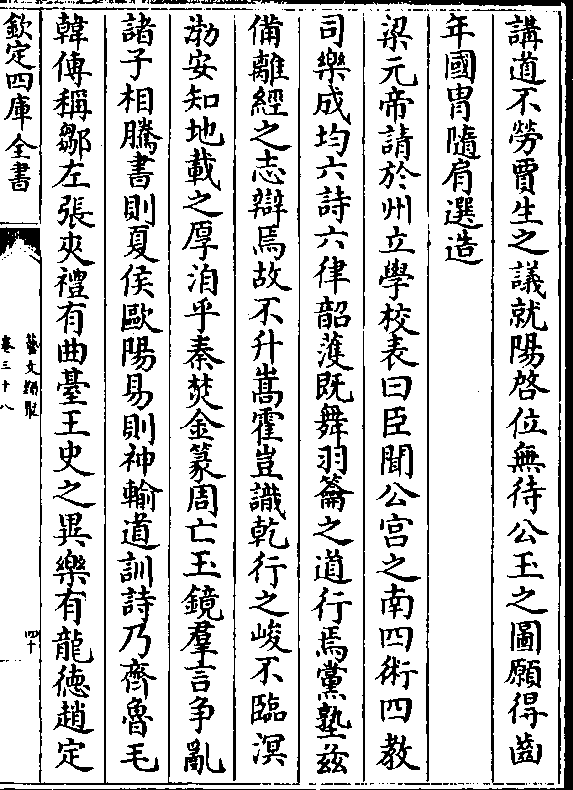 講道不勞賈生之議就陽啓位無待公玉之圖願得齒
年國胄隨肩選造
梁元帝請於州立學校表曰臣聞公宫之南四術四教
司樂成均六詩六律韶濩既舞羽籥之道行焉黨塾兹
備離經之志辯焉故不升嵩霍豈識乾行之峻不臨溟
渤安知地載之厚洎乎秦焚金篆周亡玉鏡羣言争亂
諸子相騰書則夏侯歐陽易則神輸道訓詩乃齊魯毛
韓傳稱鄒左張夾禮有曲臺王史之異樂有龍徳趙定
欽定四庫全書
藝文類聚
卷三十八
四十